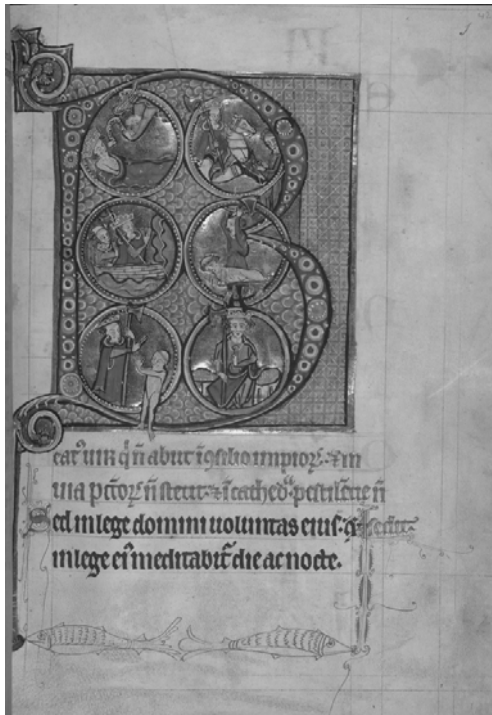 B
eatꝰ uir q̄ n̄ abiit ī ꝯsilio impioꝝ ⁊ in
uia pctoꝝ n̄ stetit ⁊ ī cathedᵃ pestilētie n̄
Sed in lege domini uoluntas eius
in lege eiꝰ meditabit̄ die ac nocte.